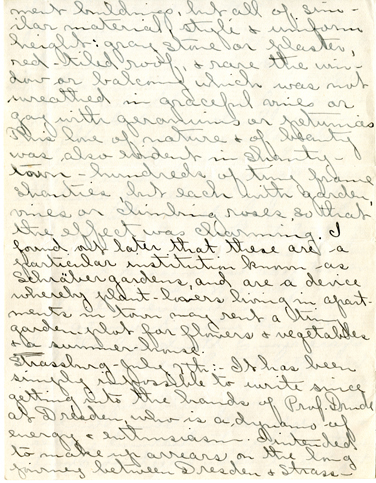 ment buildings, but all of sim-
ilar material, style & uniform
height: gray stone or plaster,
red tiled roof, & rare the win-
dow or balcony which was not
wreathed in graceful vines or
gay with geraniums or petunias.
This love of nature & of beauty
was also evident in shanty-
town - hundreds of tiny frame
shanties, but each with garden,
vines or climbing roses, so that
the effect was charming. I
found out later that these are a
particular institution known as
Schräbergardens, and are a device
whereby plant-lovers living in apart-
ments in town may rent a tiny
garden plot for flowers & vegetables
& a summer house.
Strassburg, July :- It has been
simply impossible to write since
getting into the hands of Prof. Drude
at Dresden who is a dynamo of
energy & enthusiasm. I intended
to make up arrears on the long
journey between Dresden & Strass-